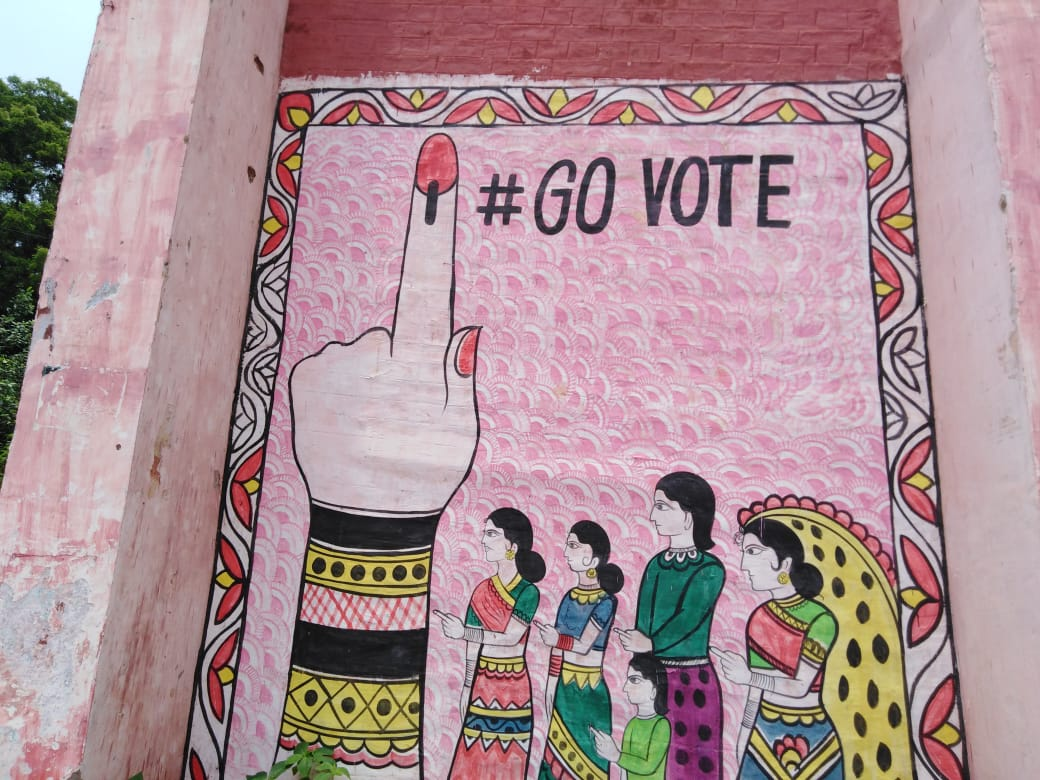 #GO VOTE